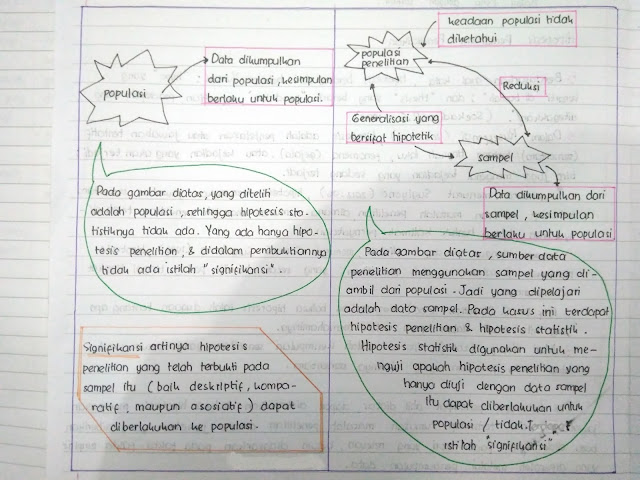 populasi
Data dikumpulkan
dari populasi, kesimpulan
berlaku untuk populasi.
Pada gambar diatas, yang diteliti
adalah populasi, sehingga hipotesis sta-
tistiknya tidak ada. Yang ada hanya hipo-
tesis penelitian, & didalam pembuktiannya
tidak ada istilah "signifikansi".
Signifikansi artinya hipotesis
penelitian yang telah terbukti pada
sampel itu (baik deskriptif, kompa-
ratif, maupun asosiatif) dapat
diberlakukan ke populasi.
keadaan populasi tidak
diketahui
populasi
penelitian
Reduksi
Generalisasi yang
bersifat hipotetik
sampel
Data dikumpulkan dari
sampel, kesimpulan
berlaku untuk populasi
Pada gambar diatas, sumber data
penelitian menggunakan sampel yang di-
ambil dari populasi. Jadi yang dipelajari
adalah data sampel. Pada kasus ini terdapat
hipotesis penelitian & hipotesis statistik.
Hipotesis statistik digunakan untuk me-
nguji apakah hipotesis penelitian yang
hanya diuji dengan data sampel
itu dapat diberlakukan untuk
populasi / tidak.
istilah "signifikansi"